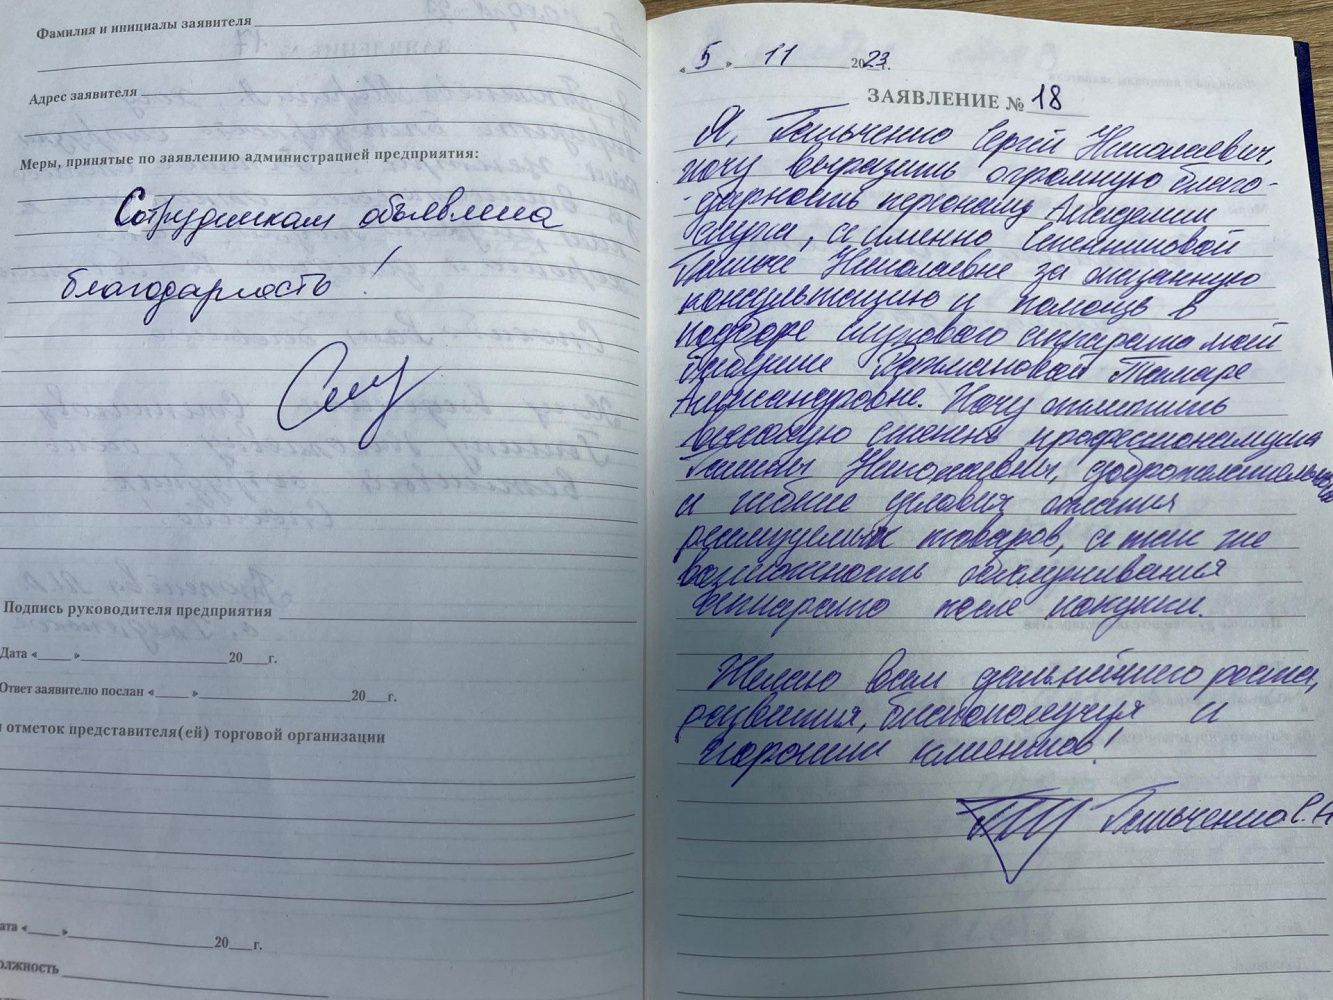 Фамилия и инициалы заявителя
Адрес заявителя
Меры, принятые по заявлению администрацией предприятия:
Сотрудникам объявлена
благодарность!
Подпись руководителя предприятия
Дата «___» ___ 20___г.
Ответ заявителю послан «___» ___ 20___г.
отметок представителя(ей) торговой организации
ата «___» ___ 20___г.
олжность
« 5 » 11 2023г.
ЗАЯВЛЕНИЕ № 18
Я, Сергей Николаевич,
хочу выразить огромную благо-
-дарность персоналу Академии
слуха, а именно
Николаевне за оказанную
консультацию и помощь в
подборе слухового аппарата моей
бабушке Тамаре
Александровне. Хочу отметить
высокую степень профессионализма
Галины Николаевны, доброжелательность
и гибкие условия оплаты
реализуемых товаров, а так же
возможность обслуживания
аппарата после покупки.
Желаю Вам дальнейшего роста,
развития, благополучия и
хороших клиентов!
С.Н